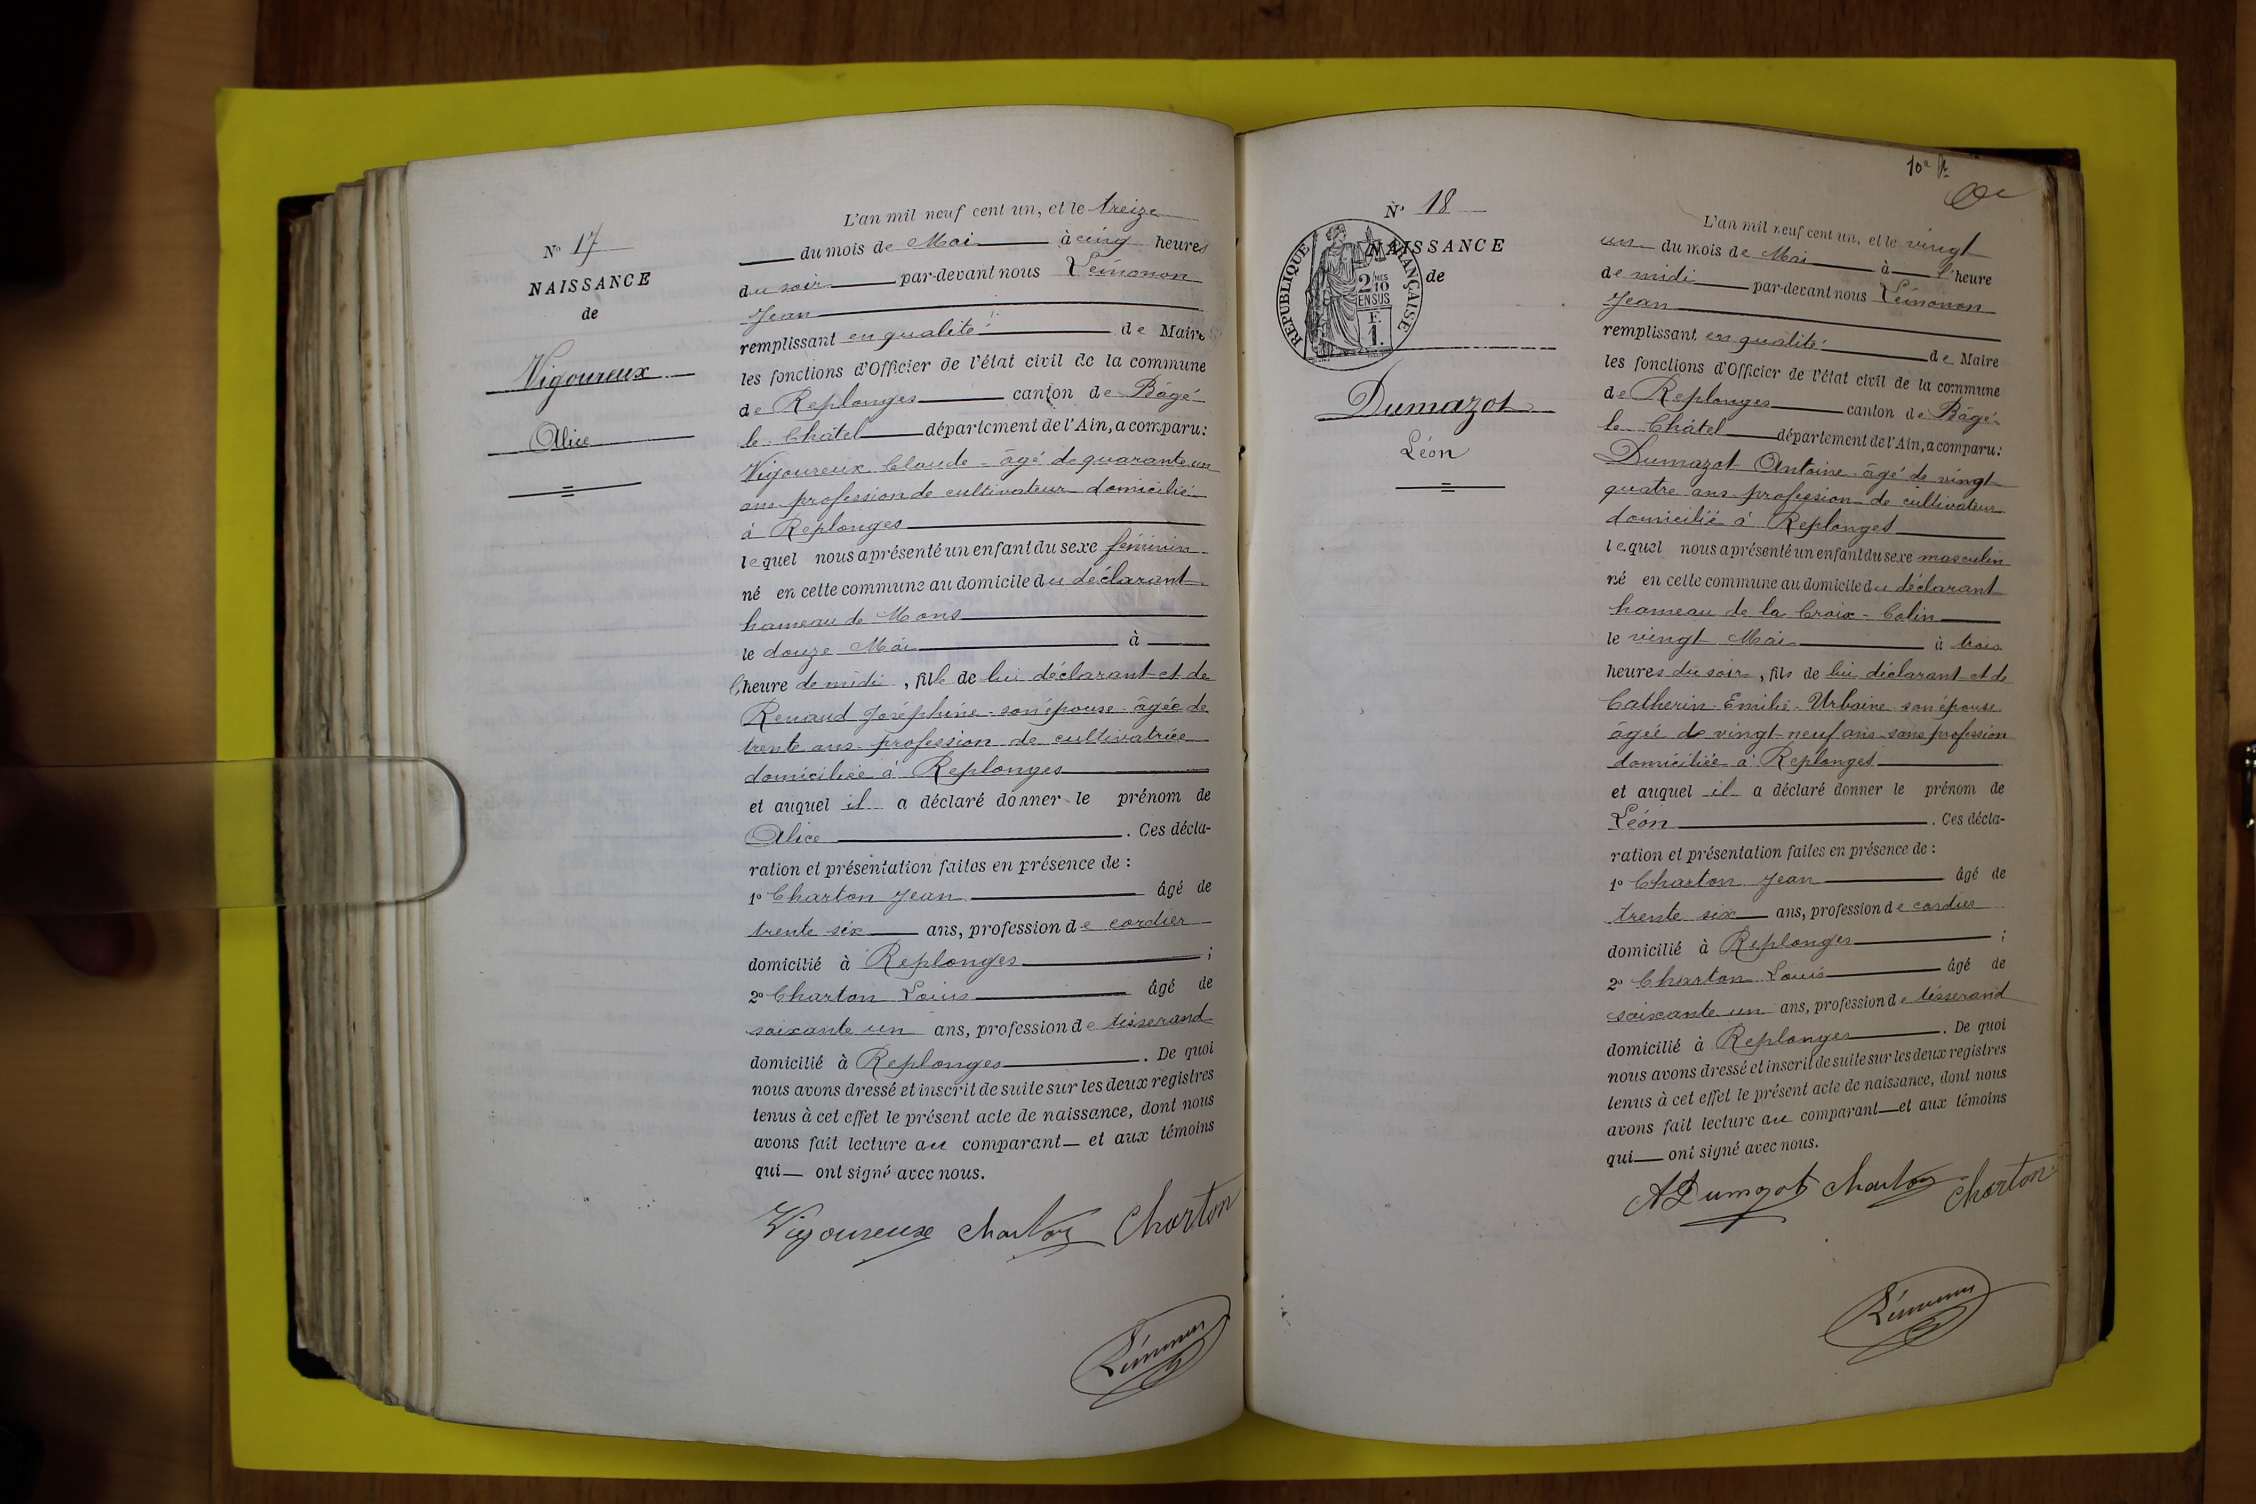 N° 17
NAISSANCE
de
Vigoureux
Alice
L'an mil neuf cent un, et le treize
du mois de Mai à cinq heures
du soir par-devant nous
Jean
remplissant en qualité de Maire
les fonctions d'Officier de l'état civil de la commune
de Replonges canton de Bâgé-
le Châtel département de l'Ain, a comparu:
Vigoureux Claude âgé de quarante un
ans profession de cultivateur domicilié
à Replonges
lequel nous a présenté un enfant du sexe féminin
né en cette commune au domicile du déclarant
hameau de Mons
le douze Mai à
l'heure de midi, fille de lui déclarant et de
Renaud Joséphine son épouse âgée de
trente ans profession de cultivatrice
domiciliée à Replonges
et auquel il a déclaré donner le prénom de
Alice. Ces décla-
ration et présentation faites en présence de :
1° Charton Jean âgé de
trente six ans, profession de cordier
domicilié à Replonges ;
2° Charton Louis âgé de
soixante un ans, profession de tisserand
domicilié à Replonges. De quoi
nous avons dressé et inscrit de suite sur les deux registres
tenus à cet effet le présent acte de naissance, dont nous
avons fait lecture au comparant et aux témoins
qui ont signé avec nous.
Vigoureux Charton Charton
10e
N° 18
NAISSANCE
de
RÉPUBLIQUE FRANÇAISE
2/10mes
EN SUS
F.
1.
Dumazot
Léon
L'an mil neuf cent un, et le vingt
un du mois de Mai à l'heure
de midi par-devant nous
Jean
remplissant en qualité de Maire
les fonctions d'Officier de l'état civil de la commune
de Replonges canton de Bâgé-
le Châtel département de l'Ain, a comparu:
Dumazot Antoine âgé de vingt
quatre ans profession de cultivateur
domicilié à Replonges
lequel nous a présenté un enfant du sexe masculin
né en cette commune au domicile du déclarant
hameau de la Croix-Colin
le vingt Mai à trois
heures du soir, fils de lui déclarant et de
Catherin Emilie Urbaine son épouse
âgée de vingt-neuf ans sans profession
domiciliée à Replonges
et auquel il a déclaré donner le prénom de
Léon. Ces décla-
ration et présentation faites en présence de :
1° Charton Jean âgé de
trente six ans, profession de cordier
domicilié à Replonges ;
2° Charton Louis âgé de
soixante un ans, profession de tisserand
domicilié à Replonges. De quoi
nous avons dressé et inscrit de suite sur les deux registres
tenus à cet effet le présent acte de naissance, dont nous
avons fait lecture au comparant et aux témoins
qui ont signé avec nous.
A Dumazot Charton Charton